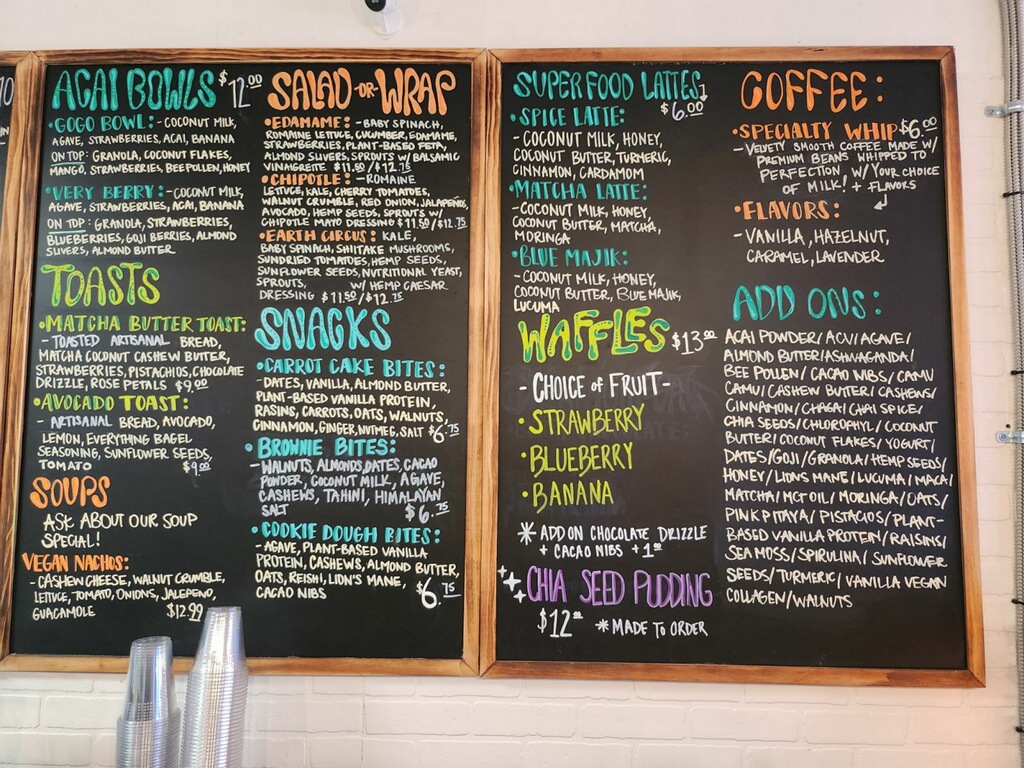 10
ACAI BOWLS $12.00
• GOGO BOWL: - COCONUT MILK,
AGAVE, STRAWBERRIES, ACAI, BANANA
ON TOP: GRANOLA, COCONUT FLAKES,
MANGO, STRAWBERRIES, BEE POLLEN, HONEY
• VERY BERRY: - COCONUT MILK,
AGAVE, STRAWBERRIES, ACAI, BANANA
ON TOP: GRANOLA, STRAWBERRIES,
BLUEBERRIES, GOJI BERRIES, ALMOND
SLIVERS, ALMOND BUTTER
TOASTS
• MATCHA BUTTER TOAST:
- TOASTED ARTISANAL BREAD,
MATCHA COCONUT CASHEW BUTTER,
STRAWBERRIES, PISTACHIOS, CHOCOLATE
DRIZZLE, ROSE PETALS $9.00
• AVOCADO TOAST:
- ARTISANAL BREAD, AVOCADO,
LEMON, EVERYTHING BAGEL
SEASONING, SUNFLOWER SEEDS,
TOMATO $9.00
SOUPS
ASK ABOUT OUR SOUP
SPECIAL!
VEGAN NACHOS:
- CASHEW CHEESE, WALNUT CRUMBLE,
LETTUCE, TOMATO, ONIONS, JALAPEÑO,
GUACAMOLE $12.99
SALAD -OR- WRAP
• EDAMAME: - BABY SPINACH,
ROMAINE LETTUCE, CUCUMBER, EDAMAME,
STRAWBERRIES, PLANT-BASED FETA,
ALMOND SLIVERS, SPROUTS W/ BALSAMIC
VINAIGRETTE $11.50/$12.75
• CHIPOTLE: - ROMAINE
LETTUCE, KALE, CHERRY TOMATOES,
WALNUT CRUMBLE, RED ONION, JALAPEÑOS,
AVOCADO, HEMP SEEDS, SPROUTS W/
CHIPOTLE MAYO DRESSING $11.50/$12.75
• EARTH CIRCUS: KALE,
BABY SPINACH, SHIITAKE MUSHROOMS,
SUNDRIED TOMATOES, HEMP SEEDS,
SUNFLOWER SEEDS, NUTRITIONAL YEAST,
SPROUTS, W/ HEMP CAESAR
DRESSING $11.50/$12.75
SNACKS
• CARROT CAKE BITES:
- DATES, VANILLA, ALMOND BUTTER,
PLANT-BASED VANILLA PROTEIN,
RASINS, CARROTS, OATS, WALNUTS,
CINNAMON, GINGER, NUTMEG, SALT $6.75
• BROWNIE BITES:
- WALNUTS, ALMONDS, DATES, CACAO
POWDER, COCONUT MILK, AGAVE,
CASHEWS, TAHINI, HIMALAYAN
SALT $6.75
• COOKIE DOUGH BITES:
- AGAVE, PLANT-BASED VANILLA
PROTEIN, CASHEWS, ALMOND BUTTER,
OATS, REISHI, LION'S MANE,
CACAO NIBS $6.75
SUPERFOOD LATTES
$6.00
• SPICE LATTE:
- COCONUT MILK, HONEY,
COCONUT BUTTER, TURMERIC,
CINNAMON, CARDAMOM
• MATCHA LATTE:
- COCONUT MILK, HONEY,
COCONUT BUTTER, MATCHA,
MORINGA
• BLUE MAJIK:
- COCONUT MILK, HONEY,
COCONUT BUTTER, BLUE MAJIK,
LUCUMA
WAFFLES $13.00
- CHOICE OF FRUIT -
• STRAWBERRY
• BLUEBERRY
• BANANA
* ADD ON CHOCOLATE DRIZZLE
+ CACAO NIBS + 1.00
CHIA SEED PUDDING
$12.00 * MADE TO ORDER
COFFEE:
• SPECIALTY WHIP $6.00
- VELVETY SMOOTH COFFEE MADE W/
PREMIUM BEANS WHIPPED TO
PERFECTION W/ YOUR CHOICE
OF MILK! + FLAVORS
• FLAVORS:
- VANILLA, HAZELNUT,
CARAMEL, LAVENDER
ADD ONS:
ACAI POWDER/ACV/AGAVE/
ALMOND BUTTER/ASHWAGANDA/
BEE POLLEN/CACAO NIBS/CAMU
CAMU/CASHEW BUTTER/CASHEWS/
CINNAMON/CHAGA/CHAI SPICE/
CHIA SEEDS/CHLOROPHYL/COCONUT
BUTTER/COCONUT FLAKES/YOGURT/
DATES/GOJI/GRANOLA/HEMP SEEDS/
HONEY/LIONS MANE/LUCUMA/MACA/
MATCHA/MCT OIL/MORINGA/OATS/
PINK PITAYA/PISTACIOS/PLANT-
BASED VANILLA PROTEIN/RAISINS/
SEA MOSS/SPIRULINA/SUNFLOWER
SEEDS/TURMERIC/VANILLA VEGAN
COLLAGEN/WALNUTS